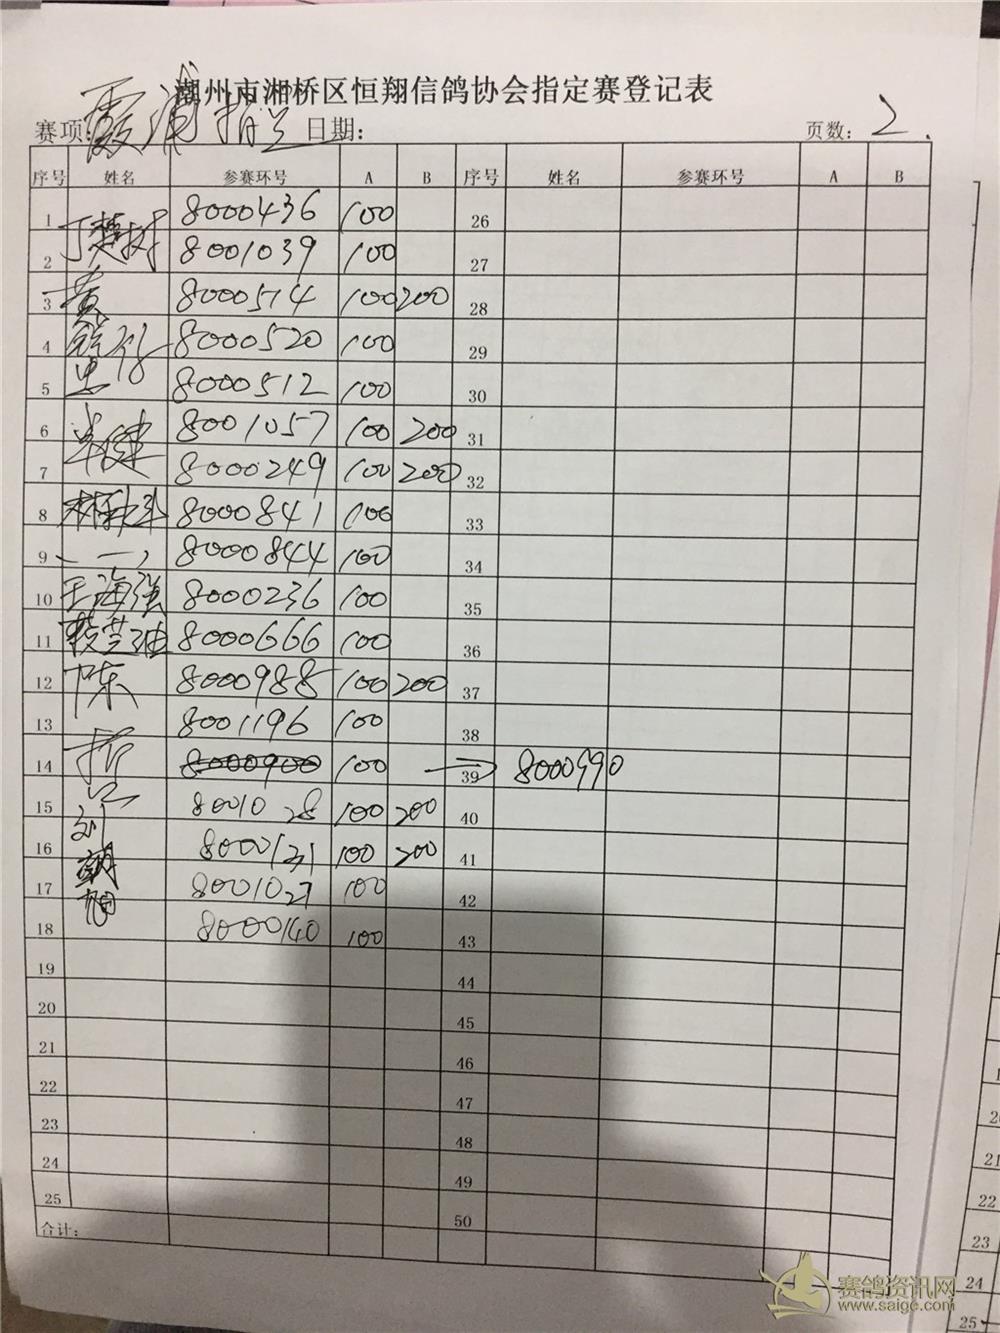 潮州市湘桥区恒翔信鸽协会指定赛登记表
赛项: 霞浦指定 日期: 页数: 2.
序号 姓名 参赛环号 A B 序号 姓名 参赛环号 A B
1 丁楚树 8000436 100 26
2 8001039 100 27
3 黄 8000514 100 200 28
4 8000520 100 29
5 忠 8000512 100 30
6 8001057 100 200 31
7 8000249 100 200 32
8 林 8000841 100 33
9 8000844 100 34
10 王海强 8000236 100 35
11 8000666 100 36
12 陈 8000988 100 200 37
13 8001196 100 38
14 哲 8000900 100 → 39 8000990
15 8001028 100 200 40
16 刘朝旭 8000131 100 200 41
17 8001027 100 42
18 8000140 100 43
19 44
20 45
21 46
22 47
23 48
24 49
25 50
合计:
20
21
22
23
24
25
赛鸽资讯网
www.saige.com